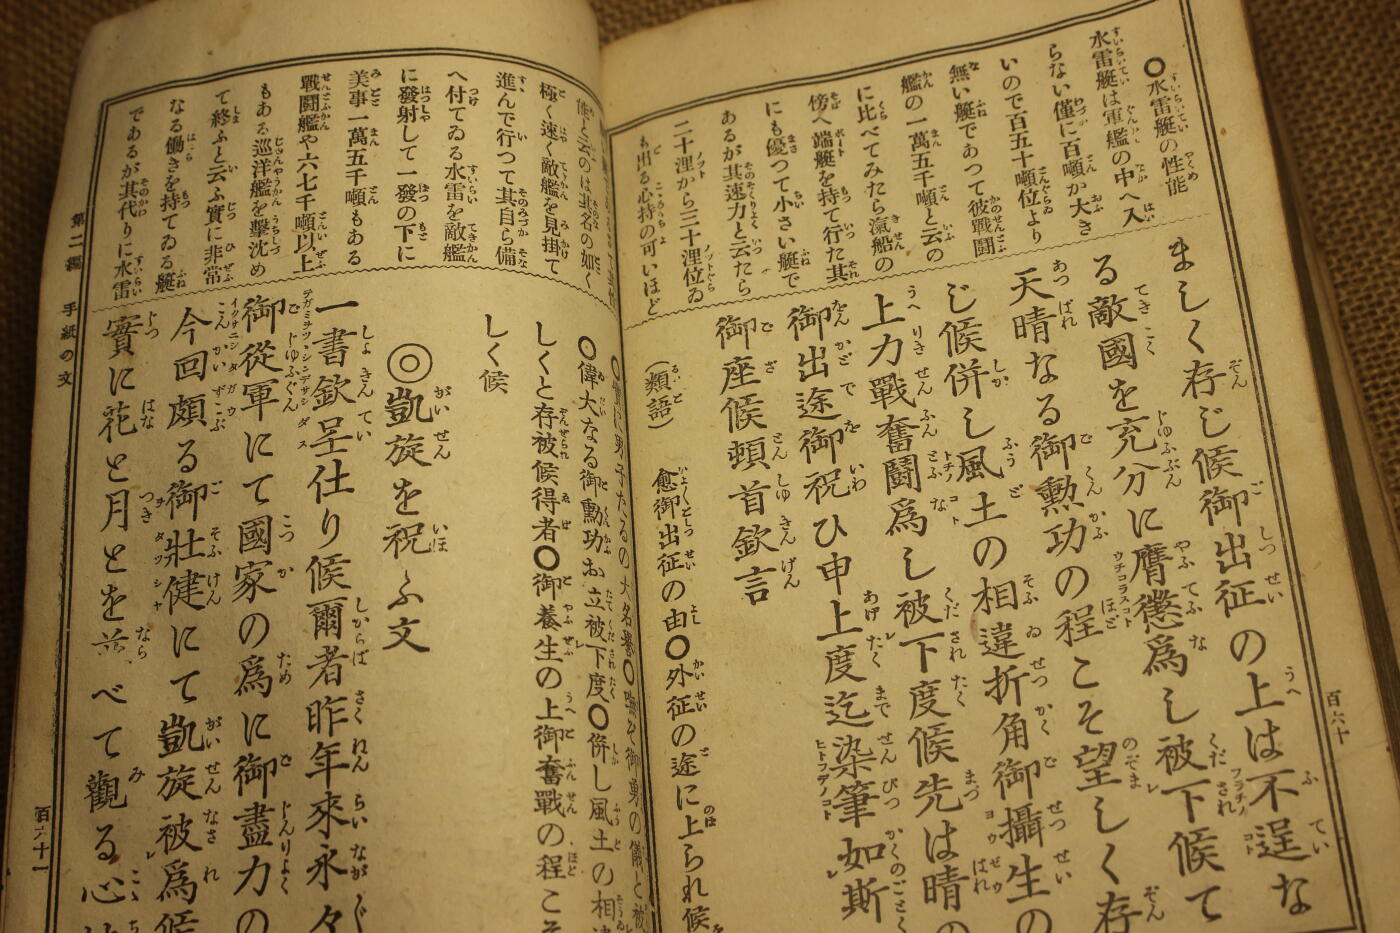 ○水雷艇の性能
水雷艇は軍艦の中へ入
らない僅に百噸か大き
いので百五十噸位より
無い艇であつて彼戰闘
艦の一萬五千噸と云の
に比べてみたら氣船の
傍へ端艇を持て行た其
にも優つて小さい艇で
あるが其速力と云たら
二十浬から三十浬位ゐ
も出る心持の可いほど
まし く存じ候御出征の上は不逞な
る敵國を充分に膺懲爲し被下候て
天晴なる御勲功の程こそ望しく存
じ候併し風土の相違折角御攝生の
上力戰奮闘爲し被下度候先は晴の
御出途御祝ひ申上度迄染筆如斯
御座候頓首欽言
(類語)
愈御出征の由○外征の途に上られ候
百六十
能と云のは其名の如く
極く速く敵艦を見掛て
進んで行つて其自ら備
へ付てゐる水雷を敵艦
に發射して一發の下に
美事一萬五千噸もある
戰闘艦や六七千噸以上
もある巡洋艦を擊沈め
て終ふと云ふ實に非常
なる働きを持てゐる艇
であるが其代りに水雷
男子たるの大名譽○
○偉大なる御勲功お立被下度○併し風土の相
しくと存被候得者○御養生の上御奮戰の程こそ
しく候
◎凱旋を祝ふ文
一書欽呈仕り候爾者昨年來永々
御從軍にて國家の爲に御盡力の
今回頗る御壯健にて凱旋被爲候
實に花と月とを並べて觀る心
第二編 手紙の文
百六十一